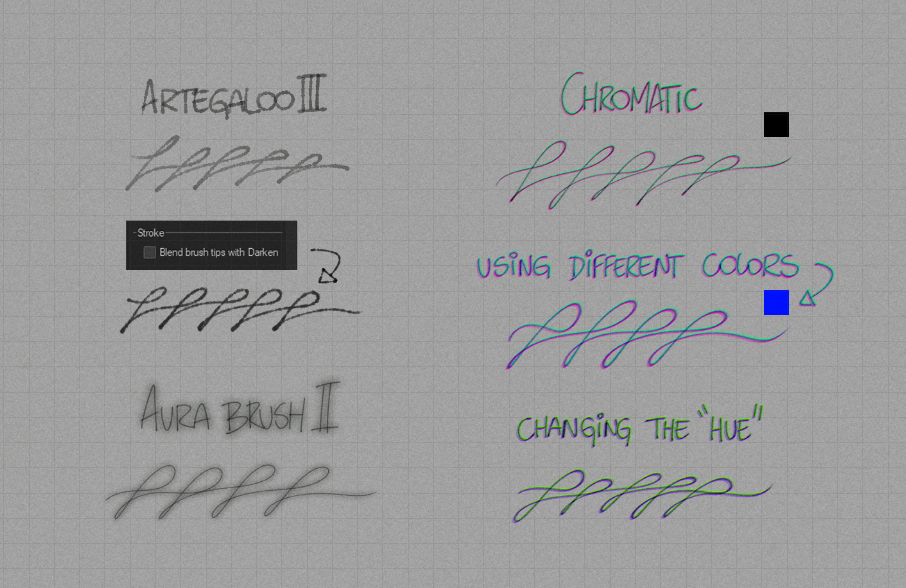 ARTEGALOO III
Stroke
Blend brush tips with Darken
AURA BRUSH II
CHROMATIC
USING DIFFERENT COLORS
CHANGING THE "HUE"